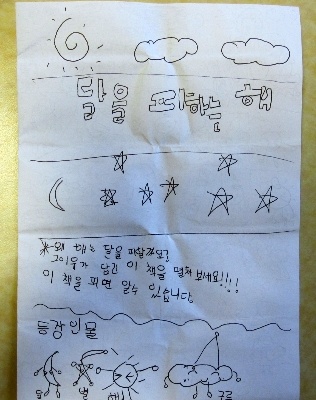 달을 피하는 해
※왜 해는 달을 피할까요?
그이유가 담긴 이 책을 펼쳐 보세요!!!!
이 책을 펴면 알수 있습니다
등장인물
달 별 해 구름